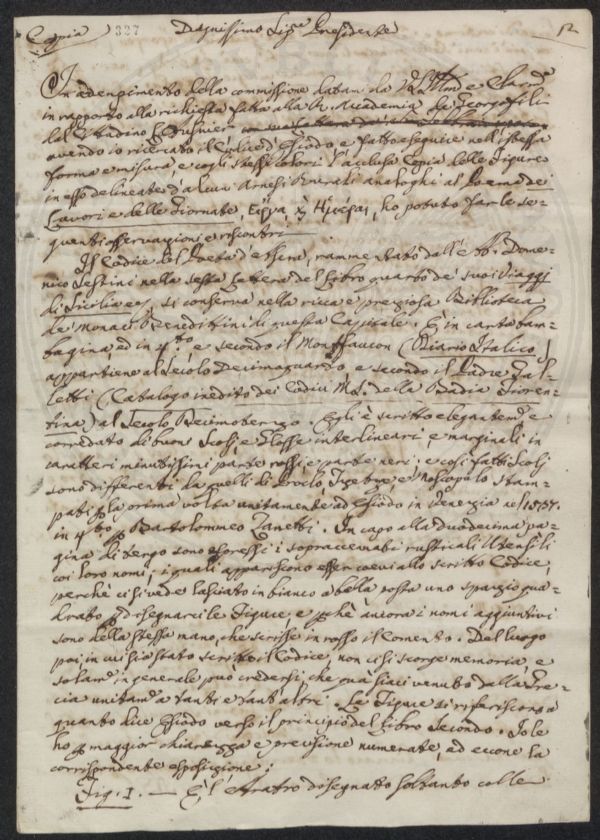 Copia 327 Degnissimo Sig.re Presidente 12
In adempimento della commissione datami da V.S. Illma e Clarma
in rapporto alla richiesta fatta alla R. Accademia de' Georgofili
dal Cittadino
avendo io ricercato il Codice d'Esiodo, e fatto eseguire nell'istessa
forma e misura, e cogli stessi colori l'acclusa Copia delle Figure
in esso delineate d'alcuni Arnesi Rurali analoghi al Poema dei
Lavori e delle Giornate, Εργα, χ Ημέραι, ho potuto far le se-
guenti osservazioni e riscontri
Il Codice del Poeta d'Ascra, rammentato dall'Ab. Dome-
nico Sestini nella sesta Lettera del Libro quarto de' suoi Viaggi
di Sicilia, si conserva nella ricca e preziosa Biblioteca
de' Monaci Benedettini di questa Capitale. È in carta bam-
bagina, ed in 4.to, e secondo il Montfaucon (Diario Italico)
appartiene al Secolo decimoquarto, e secondo il Padre Gal-
letti (Catalogo inedito dei Codici MS. della Badia Fioren-
tina) al Secolo Decimoterzo. Egli è scritto elegantem.e e
corredato di buoni Scolj, e Glosse interlineari e marginali in
caratteri minutissimi parte rossi, e parte neri, e così fatti Scolj
sono differenti da quelli di Proclo, Tzetze, e Moscopulo stam-
pati p la prima volta unitamente ad Esiodo in Venezia nel 1537.
in 4.to p Bartolommeo Zanetti. In capo alla duodecima pa-
gina di tergo sono espressi i sopraccennati rusticali Utensili
coi loro nomi, i quali appariscono esser coevi allo scritto Codice,
perchè ci si vede lasciato in bianco a bella posta uno spazio qua-
drato p disegnarci le Figure, e pchè ancora i nomi aggiuntivi
sono della stessa mano, che scrisse in rosso il Comento. Del luogo
poi, in cui sia stato scritto il Codice, non ci si scorge memoria, e
solam.e in generale può credersi, che quà siaci venuto dalla Gre-
cia unitam.e a tanti e tant'altri. Le Figure si riferiscono a
quanto dice Esiodo verso il principio del Libro Secondo. Io le
ho p maggior chiarezza e precisione numerate, ed eccone la
corrispondente esposizione:
Fig. I. — È l'Aratro disegnato soltanto colle